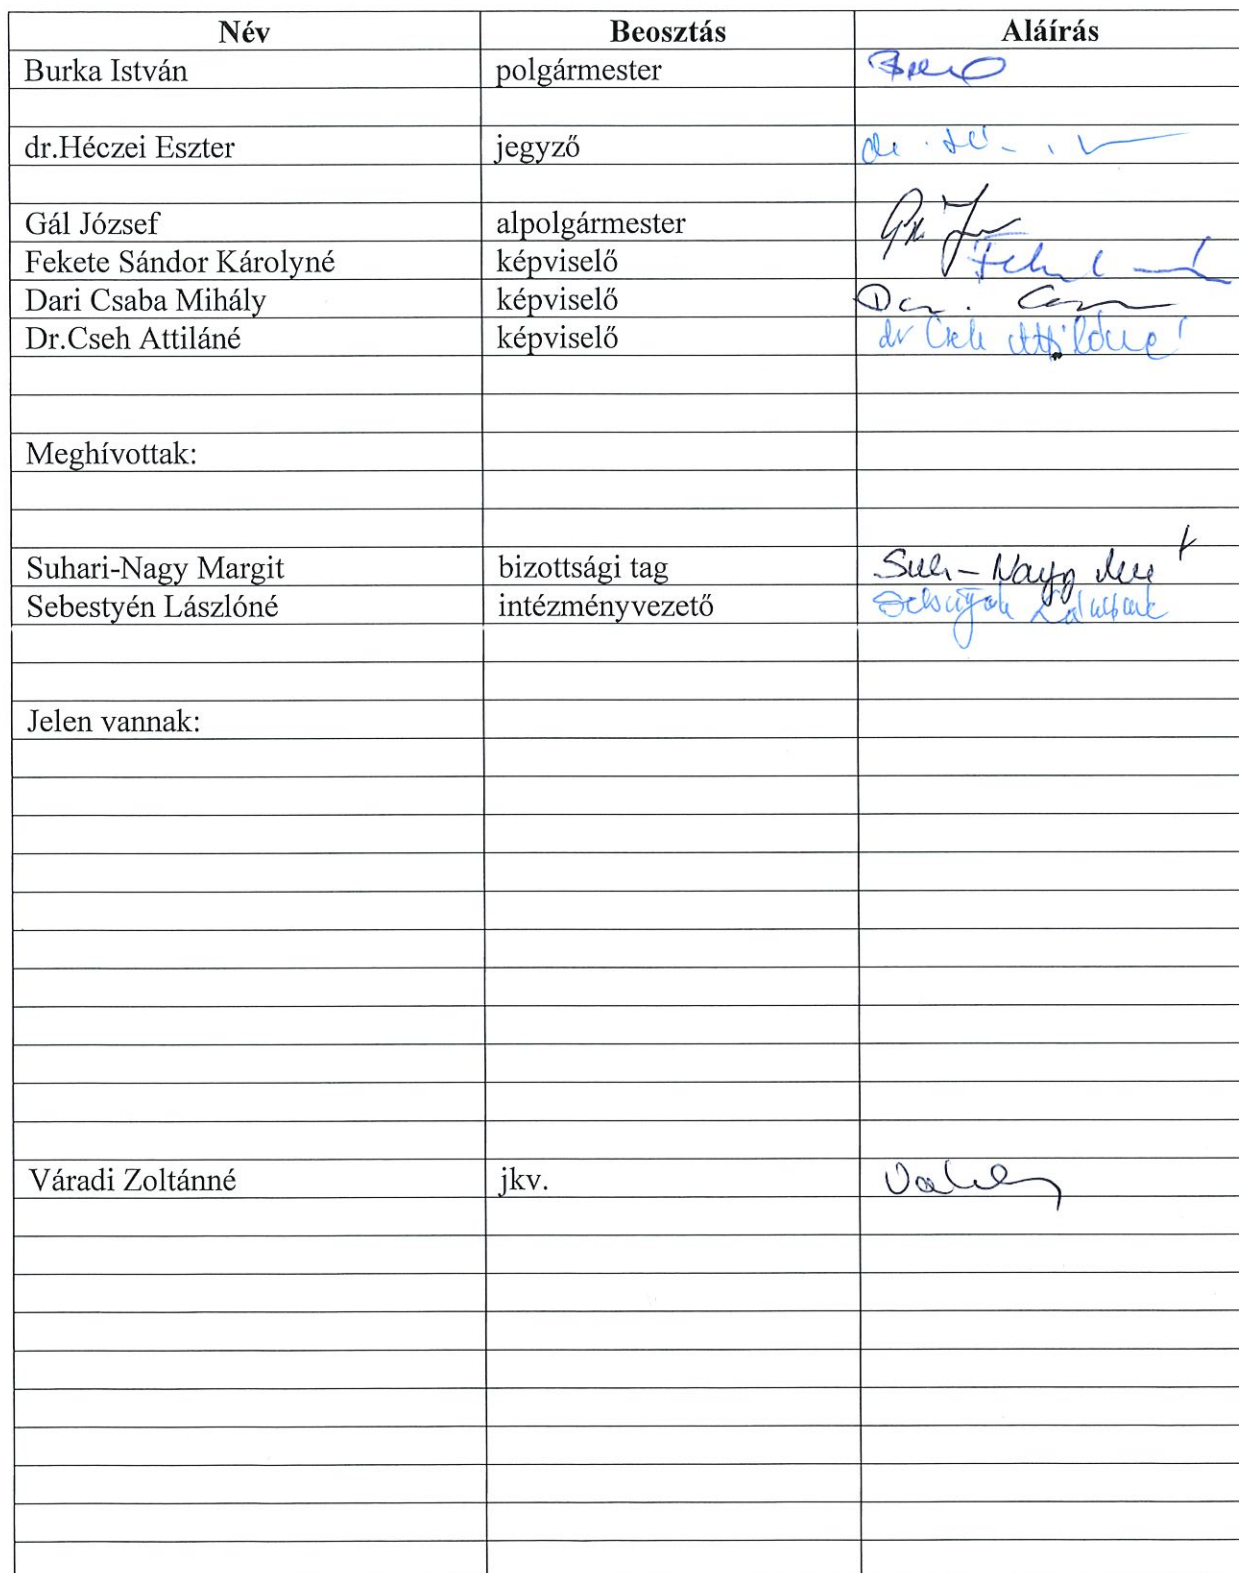 Név Beosztás Aláírás
Burka István polgármester
dr.Héczei Eszter jegyző
Gál József alpolgármester
Fekete Sándor Károlyné képviselő
Dari Csaba Mihály képviselő
Dr.Cseh Attiláné képviselő dr Cseh Attiláné
Meghívottak:
Suhari-Nagy Margit bizottsági tag
Sebestyén Lászlóné intézményvezető
Jelen vannak:
Váradi Zoltánné jkv.